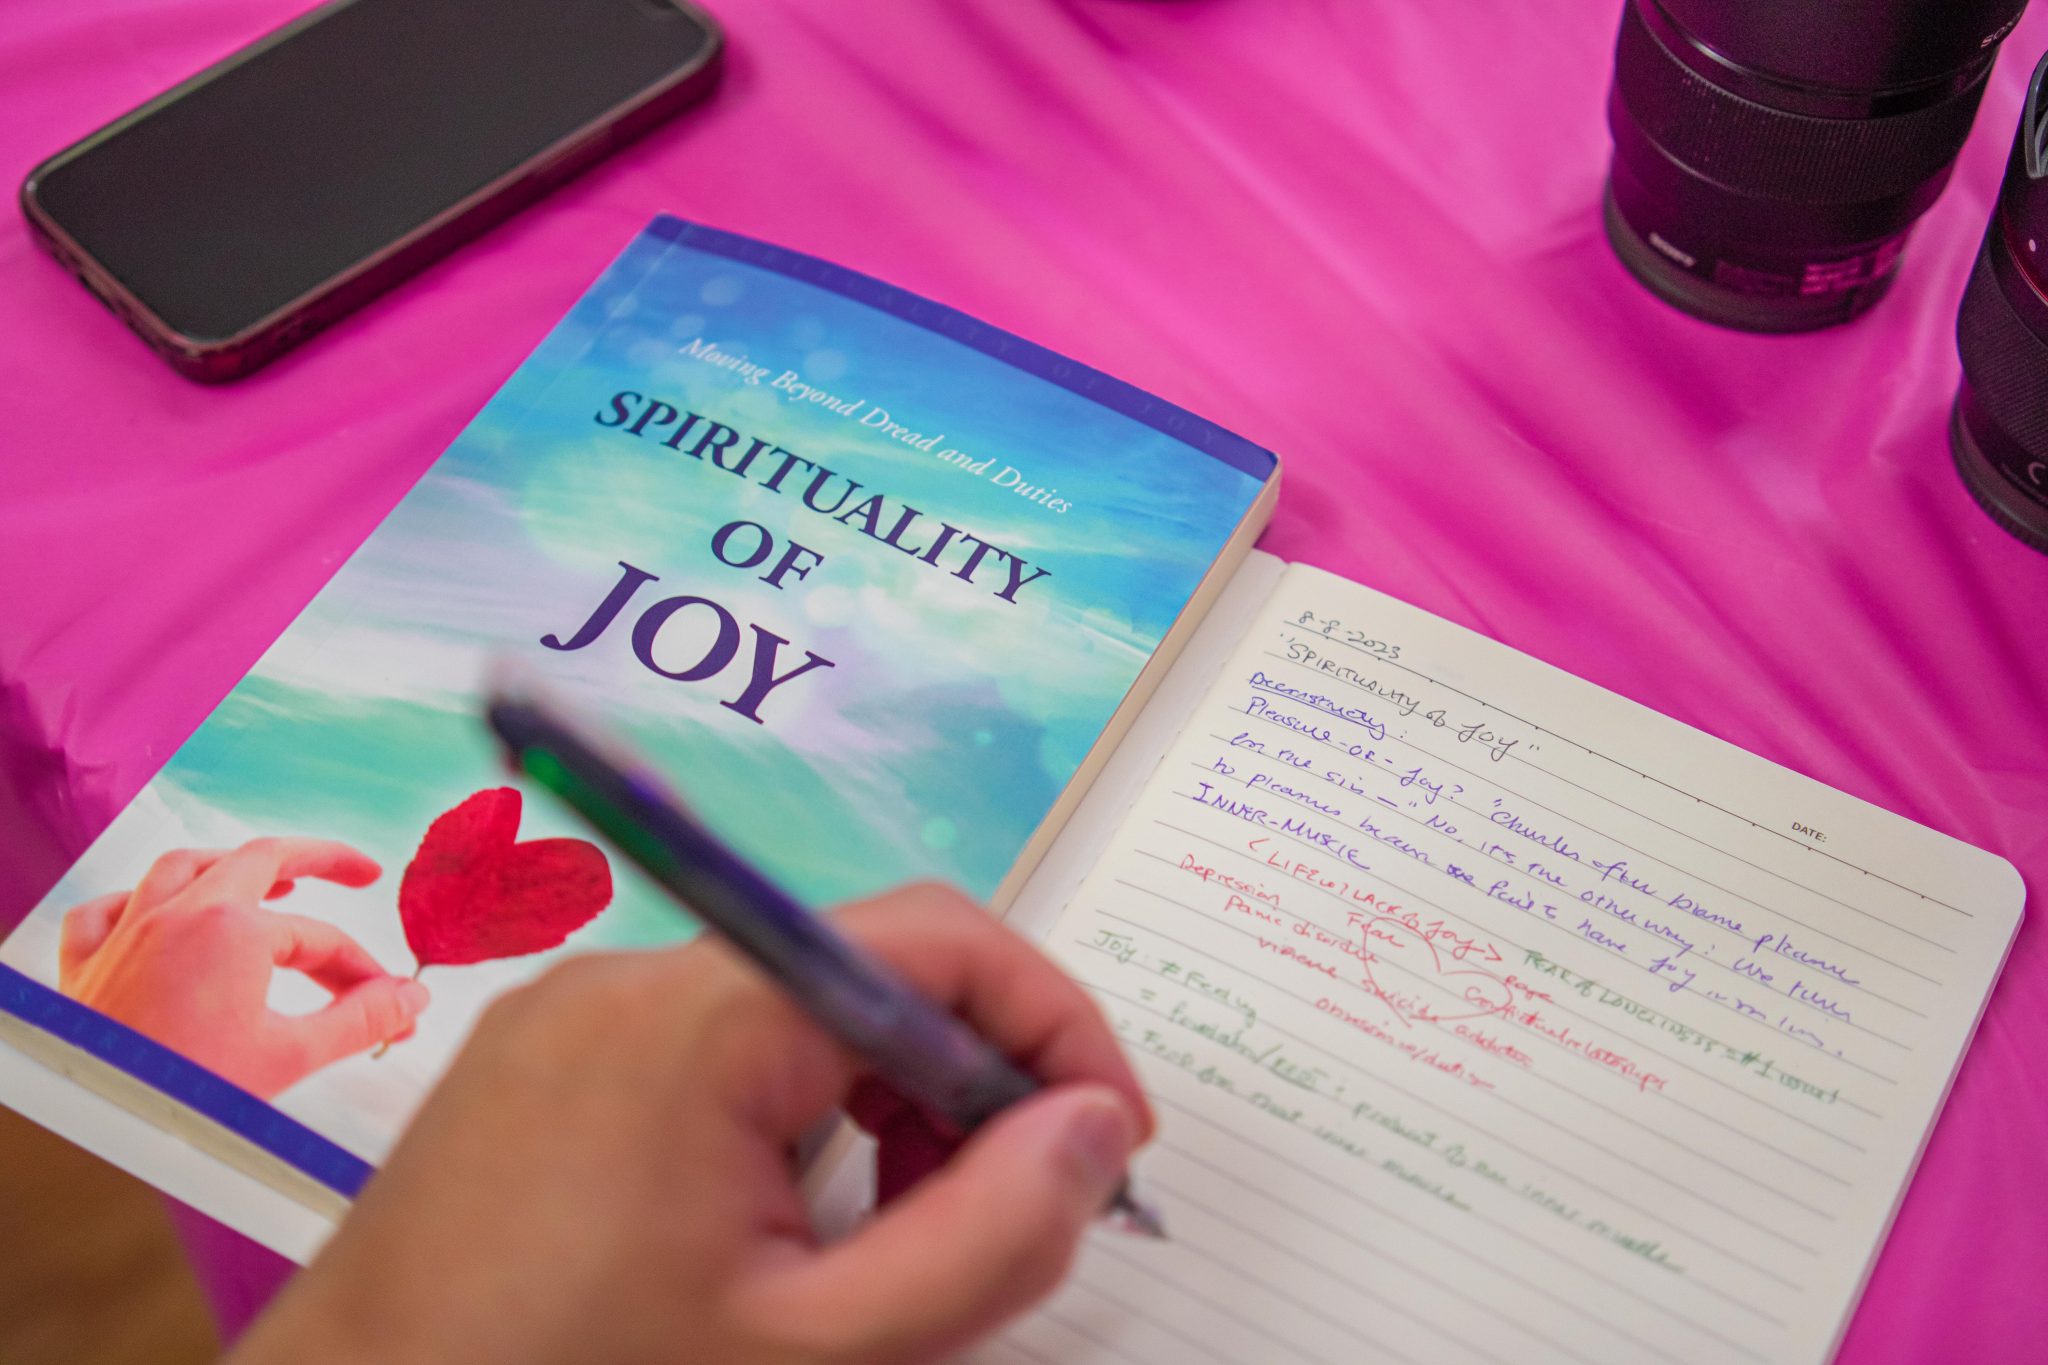 SONY
SPIRITUALITY OF JOY
Moving Beyond Dread and Duties
SPIRITUALITY
OF
JOY
8-8-2023
"SPIRITUALITY of JOY"
DATE:
Pleasure-or-Joy? "Churches often blame pleasure
for the sin — " No, it's the other way: We turn
to pleasures because we fail to have joy in our lives.
INNER-MUSIC
LACK of Joy> FEAR of LONELINESS = #1 issue!
Depression Fear rage
Panic disorder Conflictual relationships
violence suicide addictions
obsessive/
JOY: ≠ Feeling
= product of our inner
= that inner